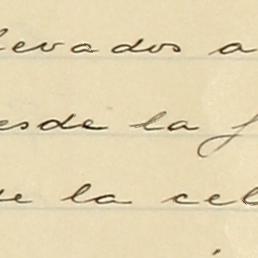 levados a
esde la f
de la cel